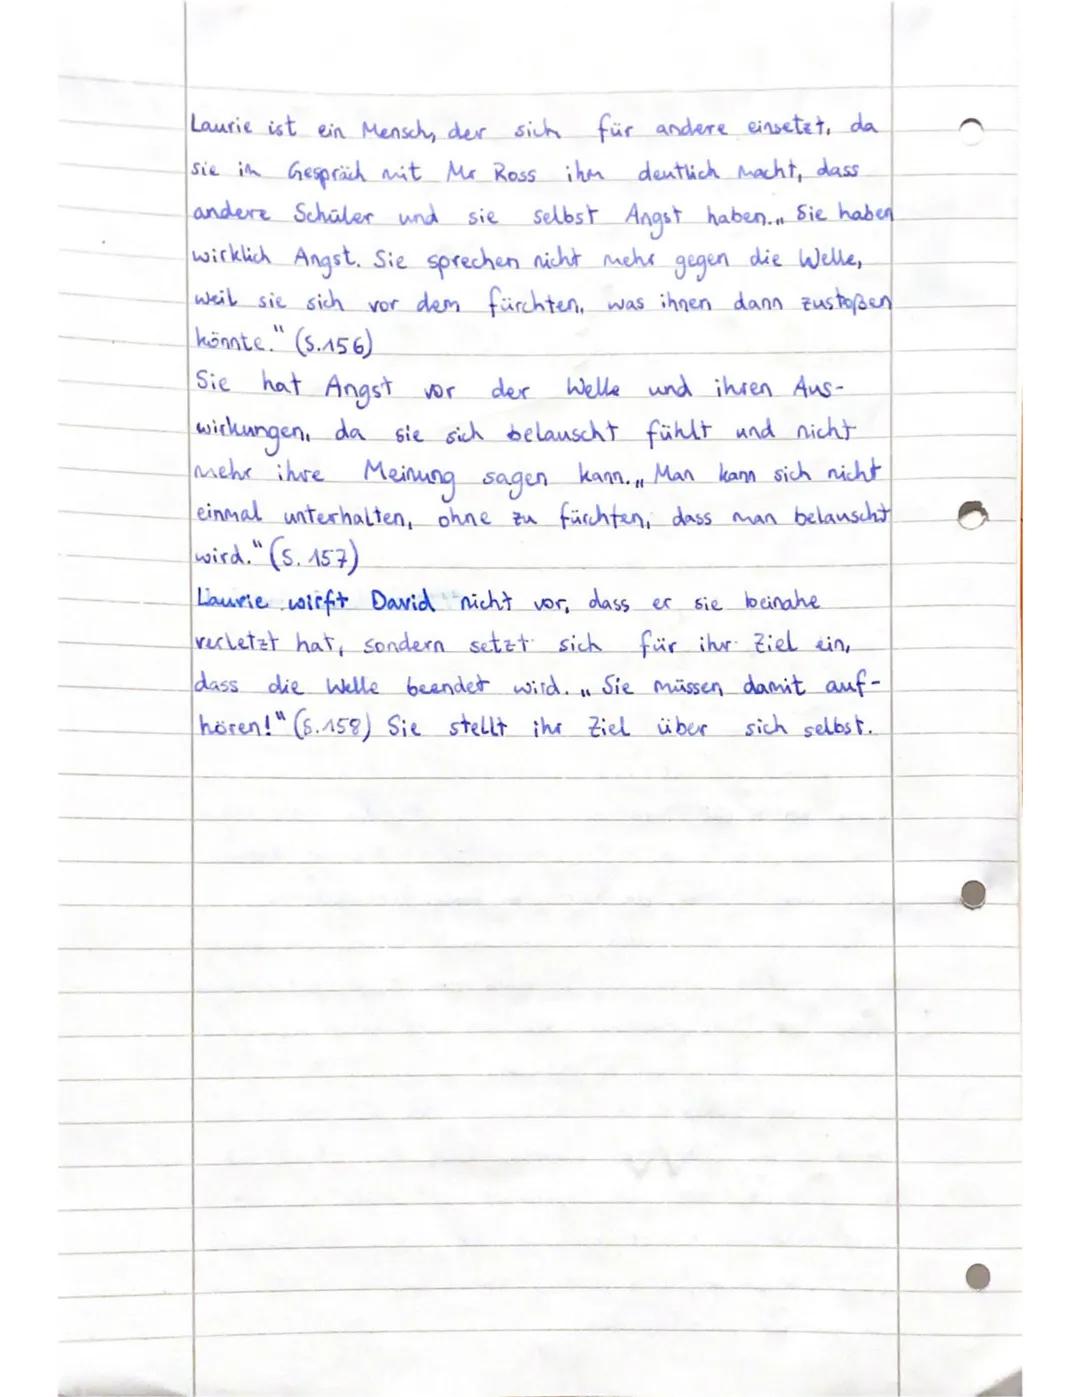 Laurie ist ein Mensch, der sich für andere einsetzt, da
sie im Gespräch mit Mr Ross ihm deutlich macht, dass
andere Schüler und sie selbst Angst haben. „Sie haben
wirklich Angst. Sie sprechen nicht mehr gegen die Welle,
weil sie sich vor dem fürchten, was ihnen dann zustoßen
könnte." (S.156)
Sie hat Angst vor der Welle und ihren Aus-
wirkungen, da sie sich belauscht fühlt und nicht
mehr ihre Meinung sagen kann. „Man kann sich nicht
einmal unterhalten, ohne zu fürchten, dass man belauscht
wird." (S. 157)
Laurie wirft David nicht vor, dass er sie beinahe
verletzt hat, sondern setzt sich für ihr Ziel ein,
dass die Welle beendet wird. „Sie müssen damit auf-
hören!" (S.158) Sie stellt ihr Ziel über sich selbst.